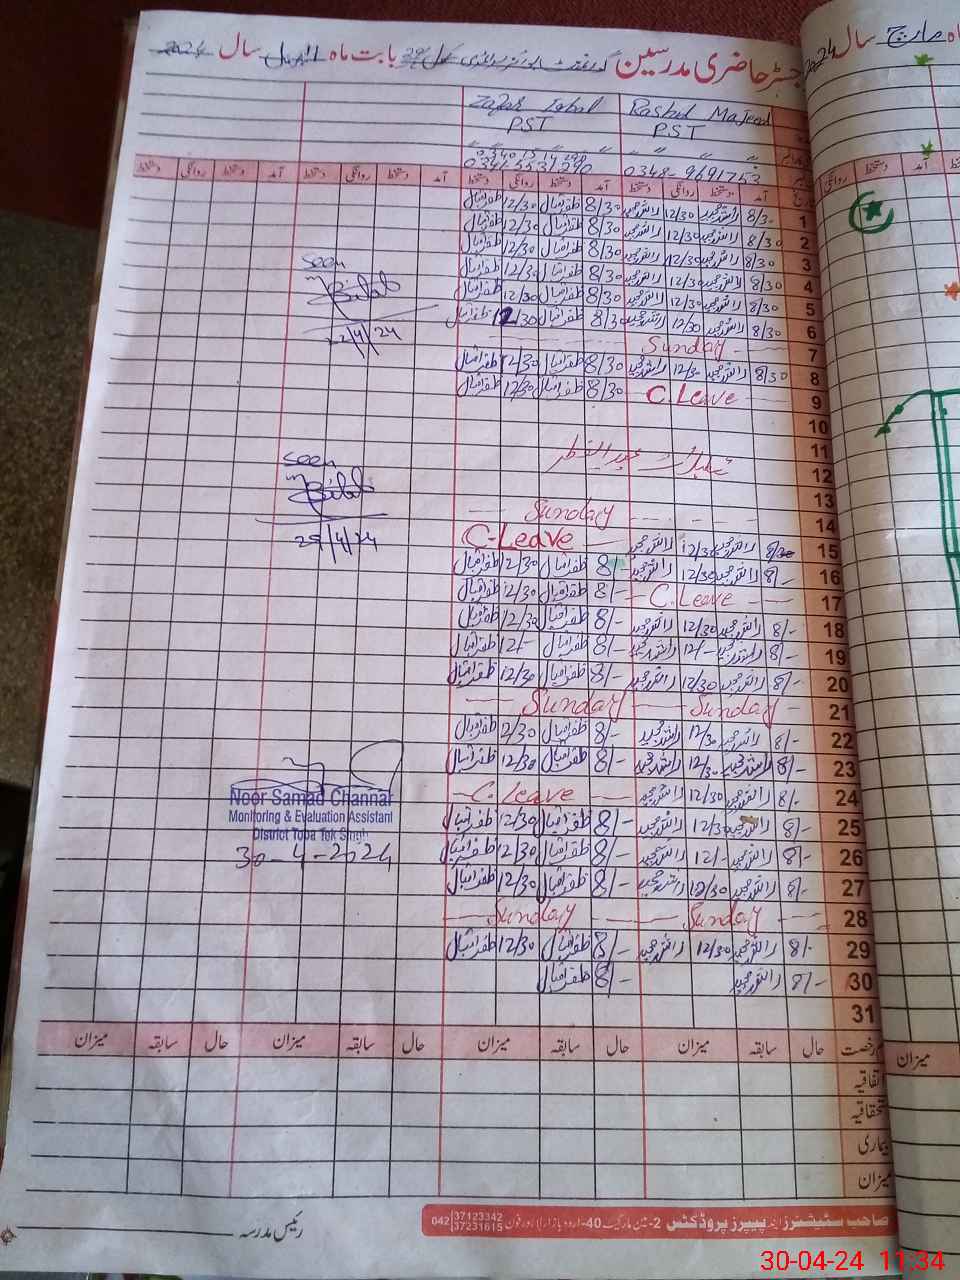 رجسٹر حاضری مدرسین بابت ماہ اپریل سال 2024
ماہ مارچ سال 2024
Rashid Majeed Zafar Iqbal
PST PST
0348-9691753 0341-5531290
آمد دستخط روانگی دستخط آمد دستخط روانگی دستخط آمد دستخط روانگی دستخط آمد دستخط روانگی دستخط
1 8/30 راشد مجید 12/30 راشد مجید 8/30 ظفر اقبال 12/30 ظفر اقبال
2 8/30 راشد مجید 12/30 راشد مجید 8/30 ظفر اقبال 12/30 ظفر اقبال
3 8/30 راشد مجید 12/30 راشد مجید 8/30 ظفر اقبال 12/30 ظفر اقبال
4 8/30 راشد مجید 12/30 راشد مجید 8/30 ظفر اقبال 12/30 ظفر اقبال
5 8/30 راشد مجید 12/30 راشد مجید 8/30 ظفر اقبال 12/30 ظفر اقبال
6 8/30 راشد مجید 12/30 راشد مجید 8/30 ظفر اقبال 12/30 ظفر اقبال
7 Sunday
8 8/30 راشد مجید 12/30 راشد مجید 8/30 ظفر اقبال 12/30 ظفر اقبال
9 C.Leave 8/30 ظفر اقبال 12/30 ظفر اقبال
10
11
12 تعطیلات عید الفطر
13
14 Sunday
15 8/30 راشد مجید 12/30 راشد مجید C-Leave
16 8/- راشد مجید 12/30 راشد مجید 8/- ظفر اقبال 12/30 ظفر اقبال
17 C.Leave 8/- ظفر اقبال 12/30 ظفر اقبال
18 8/- راشد مجید 12/30 راشد مجید 8/- ظفر اقبال 12/30 ظفر اقبال
19 8/- راشد مجید 12/- راشد مجید 8/- ظفر اقبال 12/- ظفر اقبال
20 8/- راشد مجید 12/30 راشد مجید 8/- ظفر اقبال 12/30 ظفر اقبال
21 Sunday Sunday
22 8/- راشد مجید 12/30 راشد مجید 8/- ظفر اقبال 12/30 ظفر اقبال
23 8/- راشد مجید 12/30 راشد مجید 8/- ظفر اقبال 12/30 ظفر اقبال
24 8/- راشد مجید 12/30 راشد مجید C.Leave
25 8/- راشد مجید 12/30 راشد مجید 8/- ظفر اقبال 12/30 ظفر اقبال
26 8/- راشد مجید 12/- راشد مجید 8/- ظفر اقبال 12/30 ظفر اقبال
27 8/- راشد مجید 12/30 راشد مجید 8/- ظفر اقبال 12/30 ظفر اقبال
28 Sunday Sunday
29 8/- راشد مجید 12/30 راشد مجید 8/- ظفر اقبال 12/30 ظفر اقبال
30 8/- راشد مجید 8/- ظفر اقبال
31
seen
Bilal
22/4/24
seen
Bilal
29/4/24
Noor Samad Channar
Monitoring & Evaluation Assistant
District Toba Tek Singh
30-4-2024
رخصت حال سابقہ میزان حال سابقہ میزان حال سابقہ میزان حال سابقہ میزان
میزان
اتفاقیہ
استحقاقیہ
بیماری
میزان
رئیس مدرسہ
صاحب سٹیشنرز اینڈ پیپرز پروڈکٹس 2-مین مارکیٹ 40-اردو بازار لاہور فون 042 37123342 37231615
30-04-24 11:34